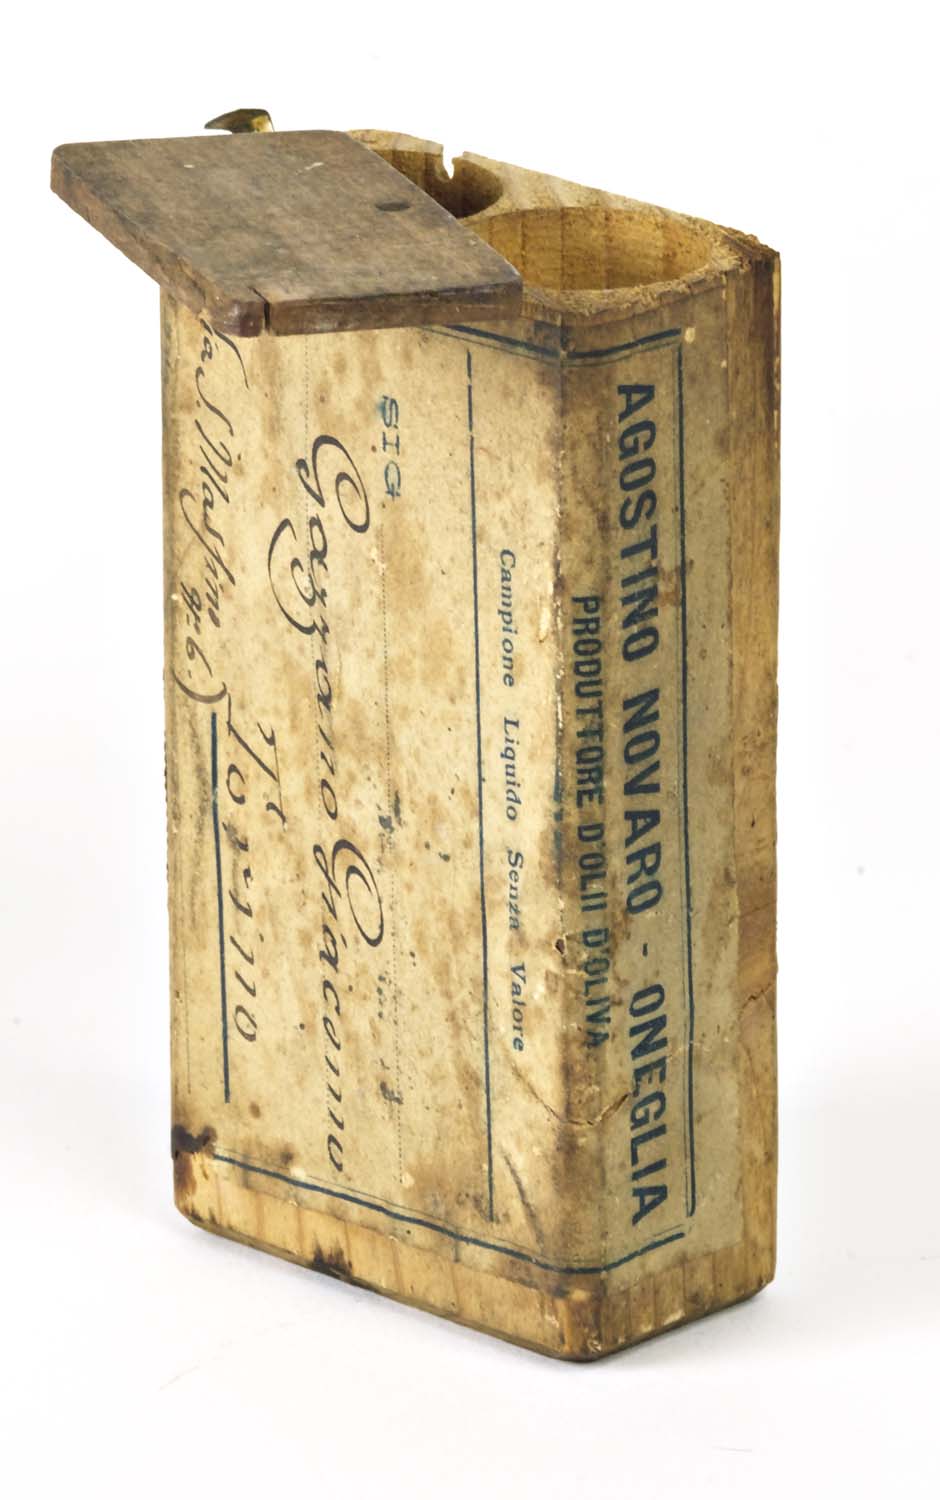 AGOSTINO NOVARO - ONEGLIA
PRODUTTORE D'OLII D'OLIVA
Campione Liquido Senza Valore
SIG.
Gazzano Giacomo
Torino